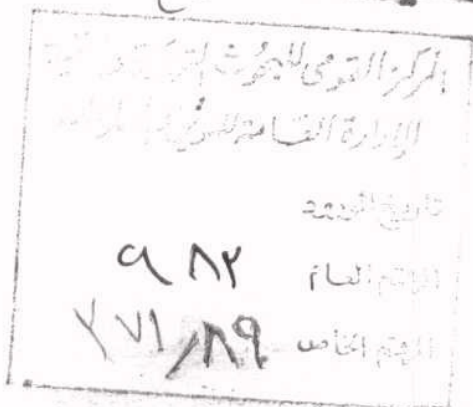 المركز القومى للبحوث التربوية
الإدارة العامة
تاريخ الورود
الرقم العام ٩٨٢
الرقم الخاص ٢٧١/٨٩